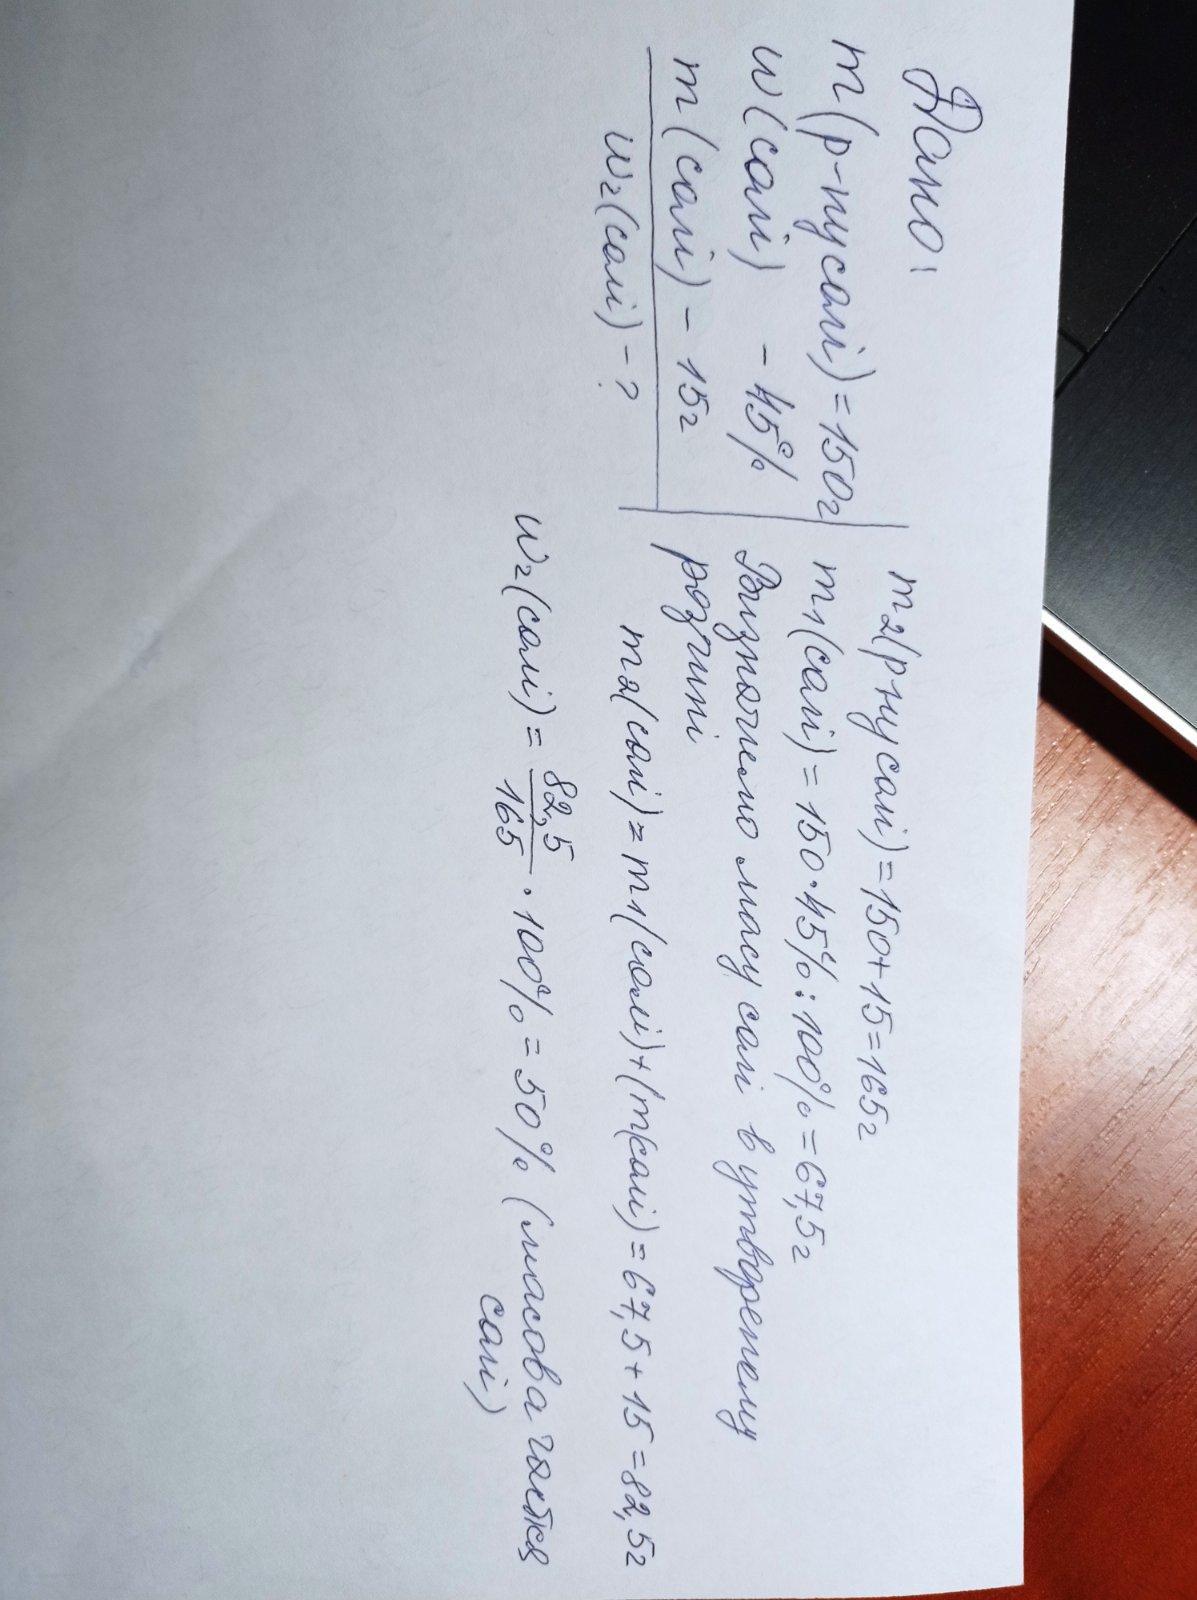 Дано:
m(р-ну солі) = 150г
w(солі) - 45%
m(солі) - 15г
w₂(солі) - ?
m₂(р-ну солі) = 150 + 15 = 165г
m₁(солі) = 150 · 45% : 100% = 67,5г
Визначимо масу солі в утвореному
розчині
m₂(солі) = m₁(солі) + (m(солі) = 67,5 + 15 = 82,5г
w₂(солі) = 82,5/165 · 100% = 50% (масова частка
солі)